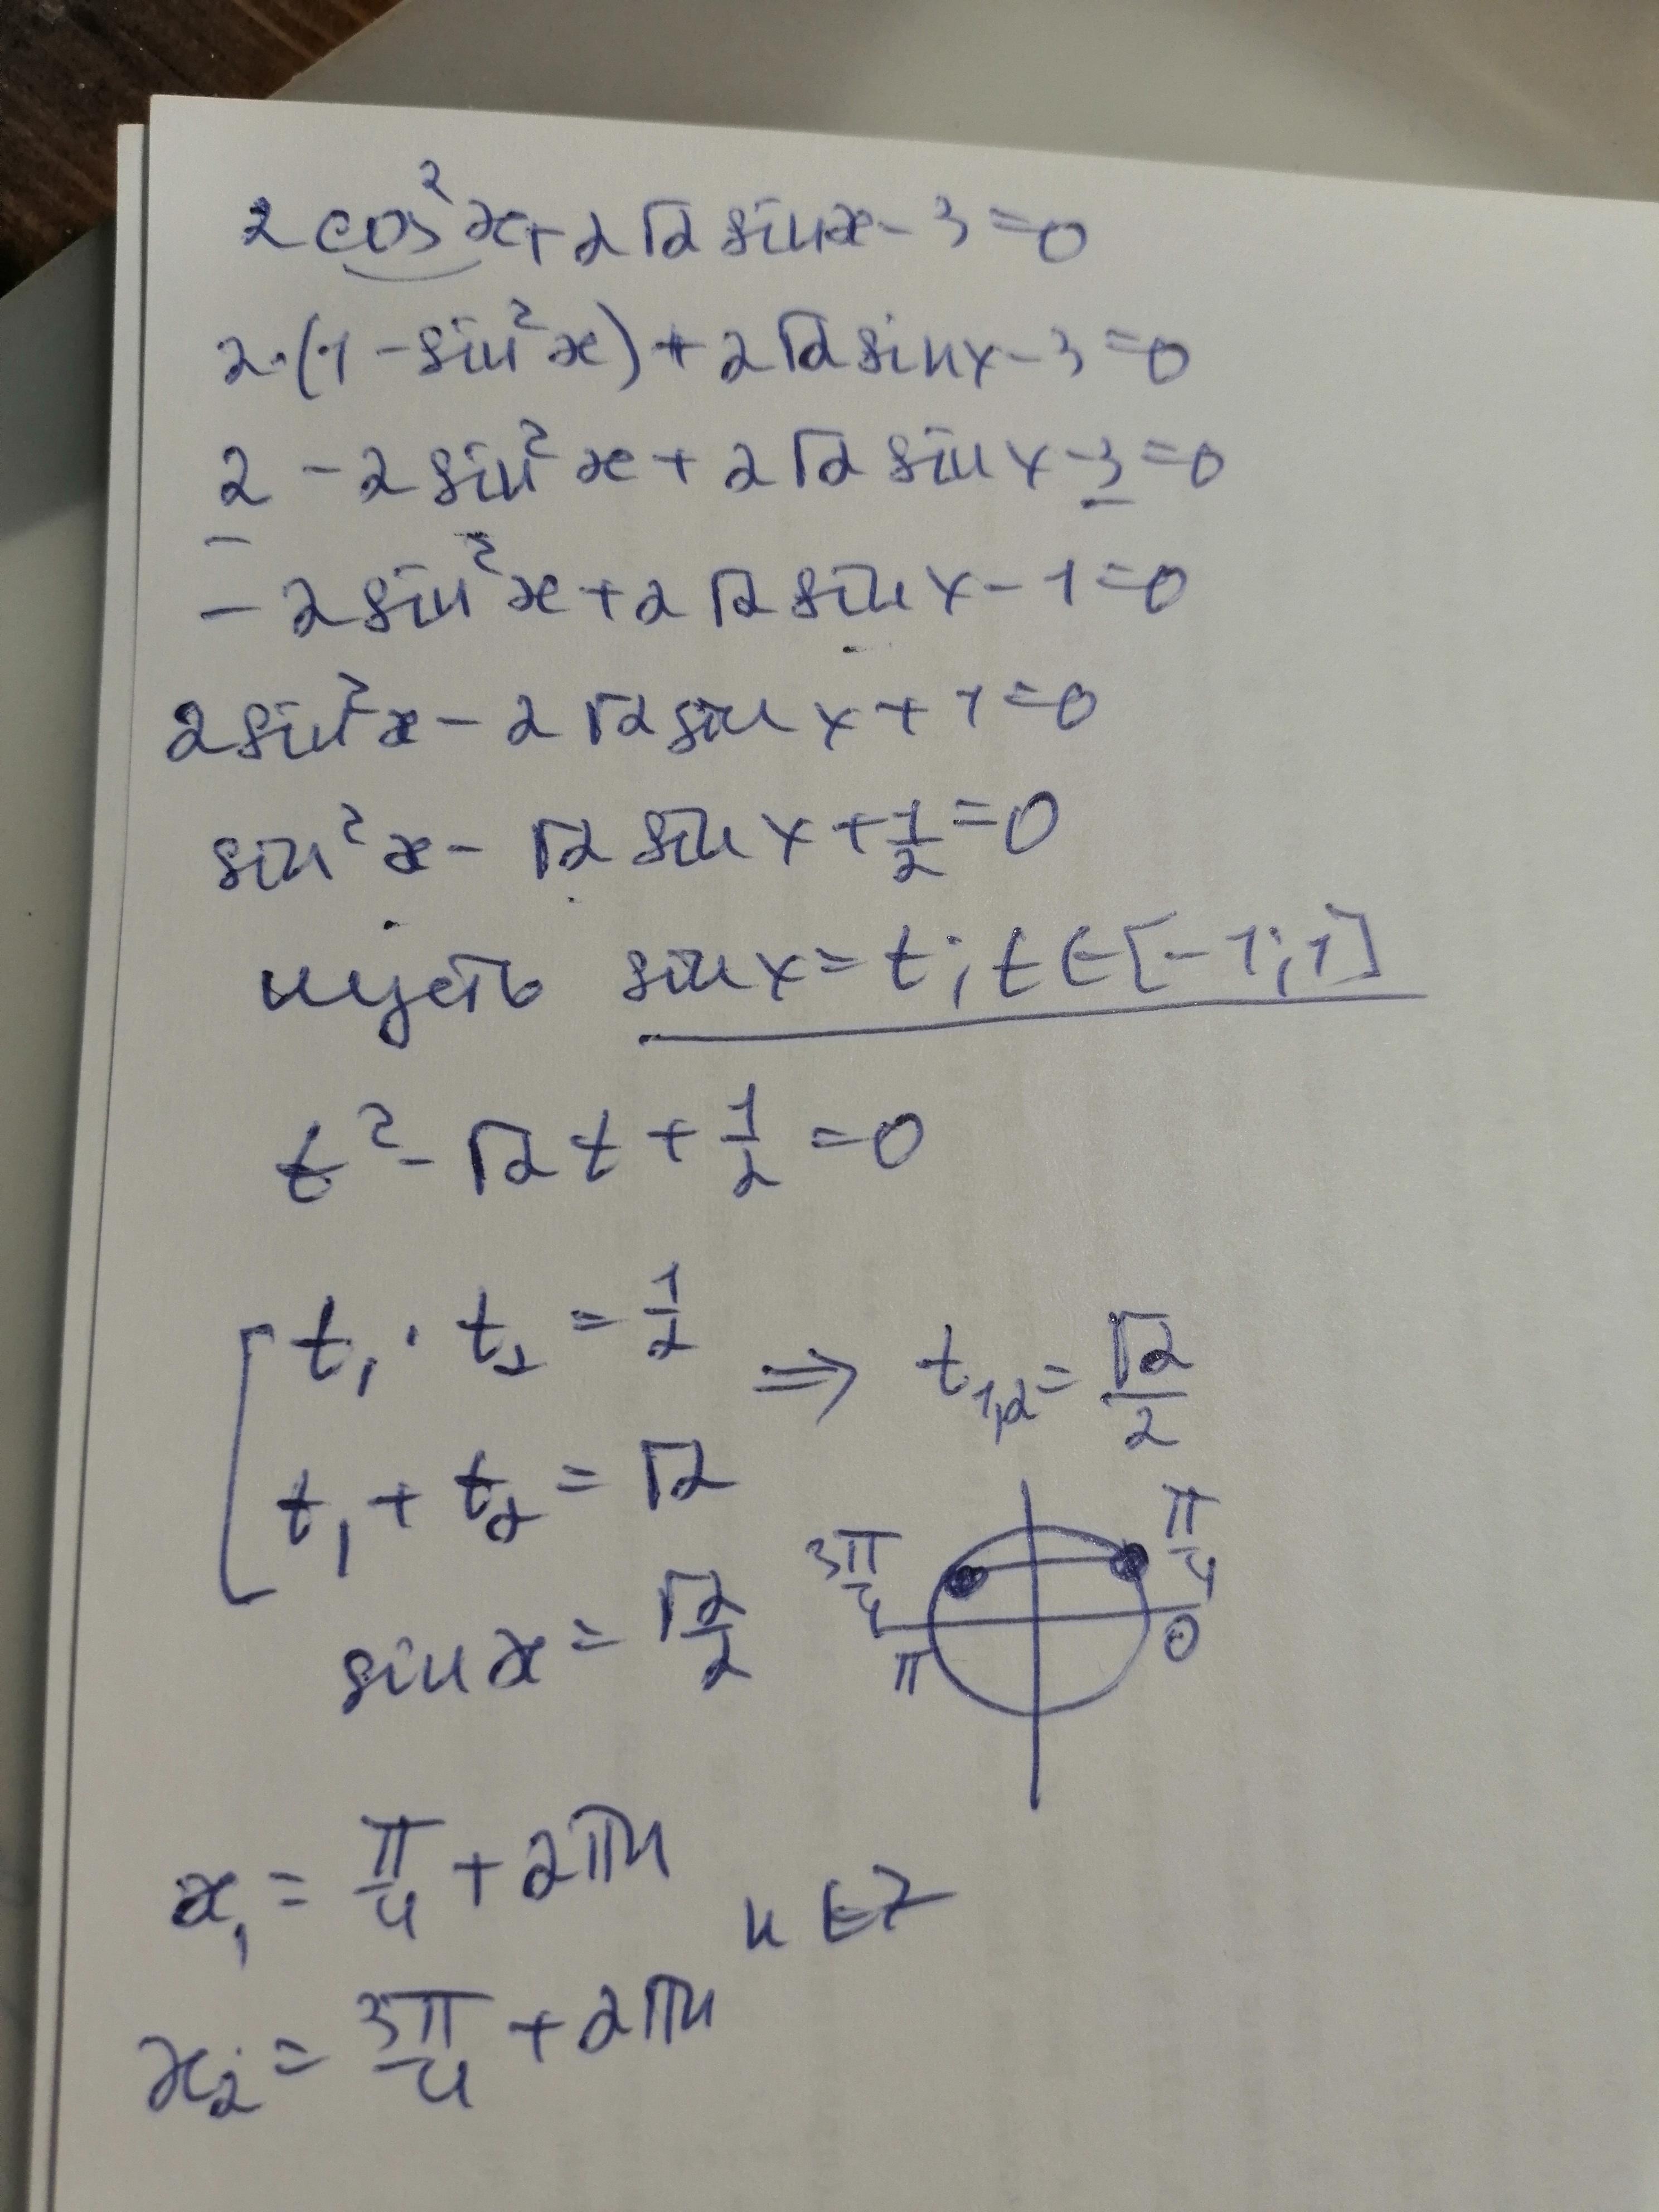 2cos²x+2√2 sinx-3=0
2·(1-sin²x)+2√2 sinx-3=0
2-2sin²x+2√2 sinx-3=0
-2sin²x+2√2 sinx-1=0
2sin²x-2√2 sinx+1=0
sin²x-√2 sinx+1/2=0
пусть sinx=t; t∈[-1;1]
t²-√2t+1/2=0
[t₁·t₂=1/2
t₁+t₂=√2
⇒ t₁,₂=√2/2
sinx=√2/2
3π/4
π/4
π
0
x₁=π/4+2πn
n∈Z
x₂=3π/4+2πn